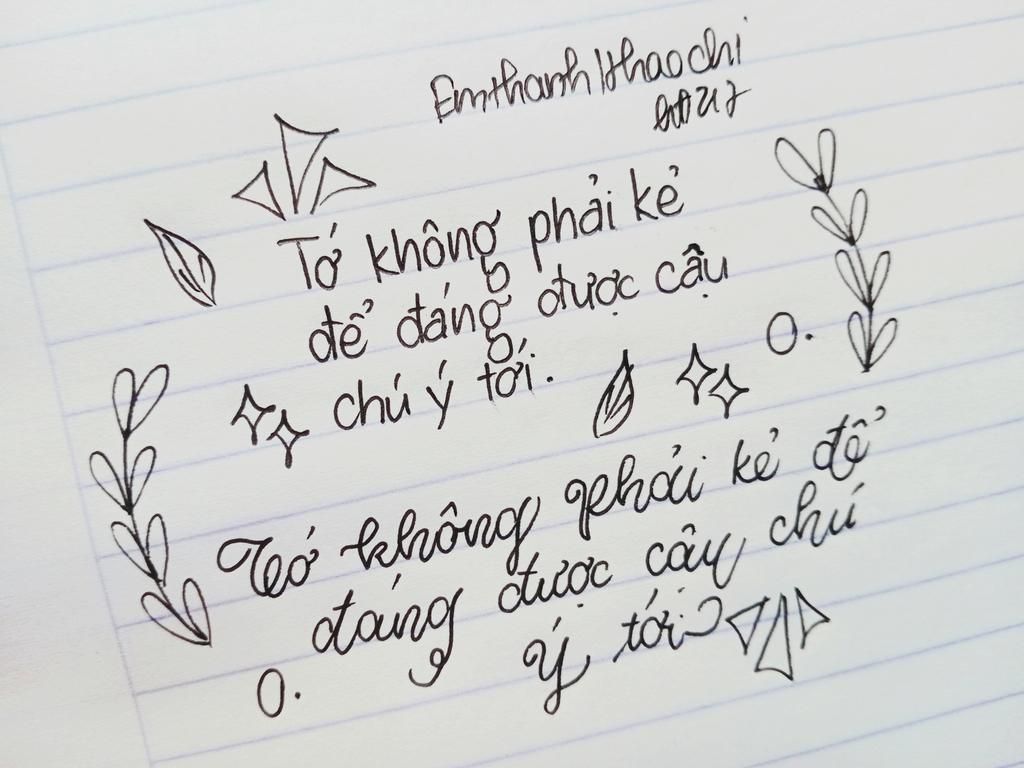 Tớ không phải kẻ
để đáng được cậu
chú ý tới.
O.
Tớ không phải kẻ để
đáng được cậu chú
ý tới
O.